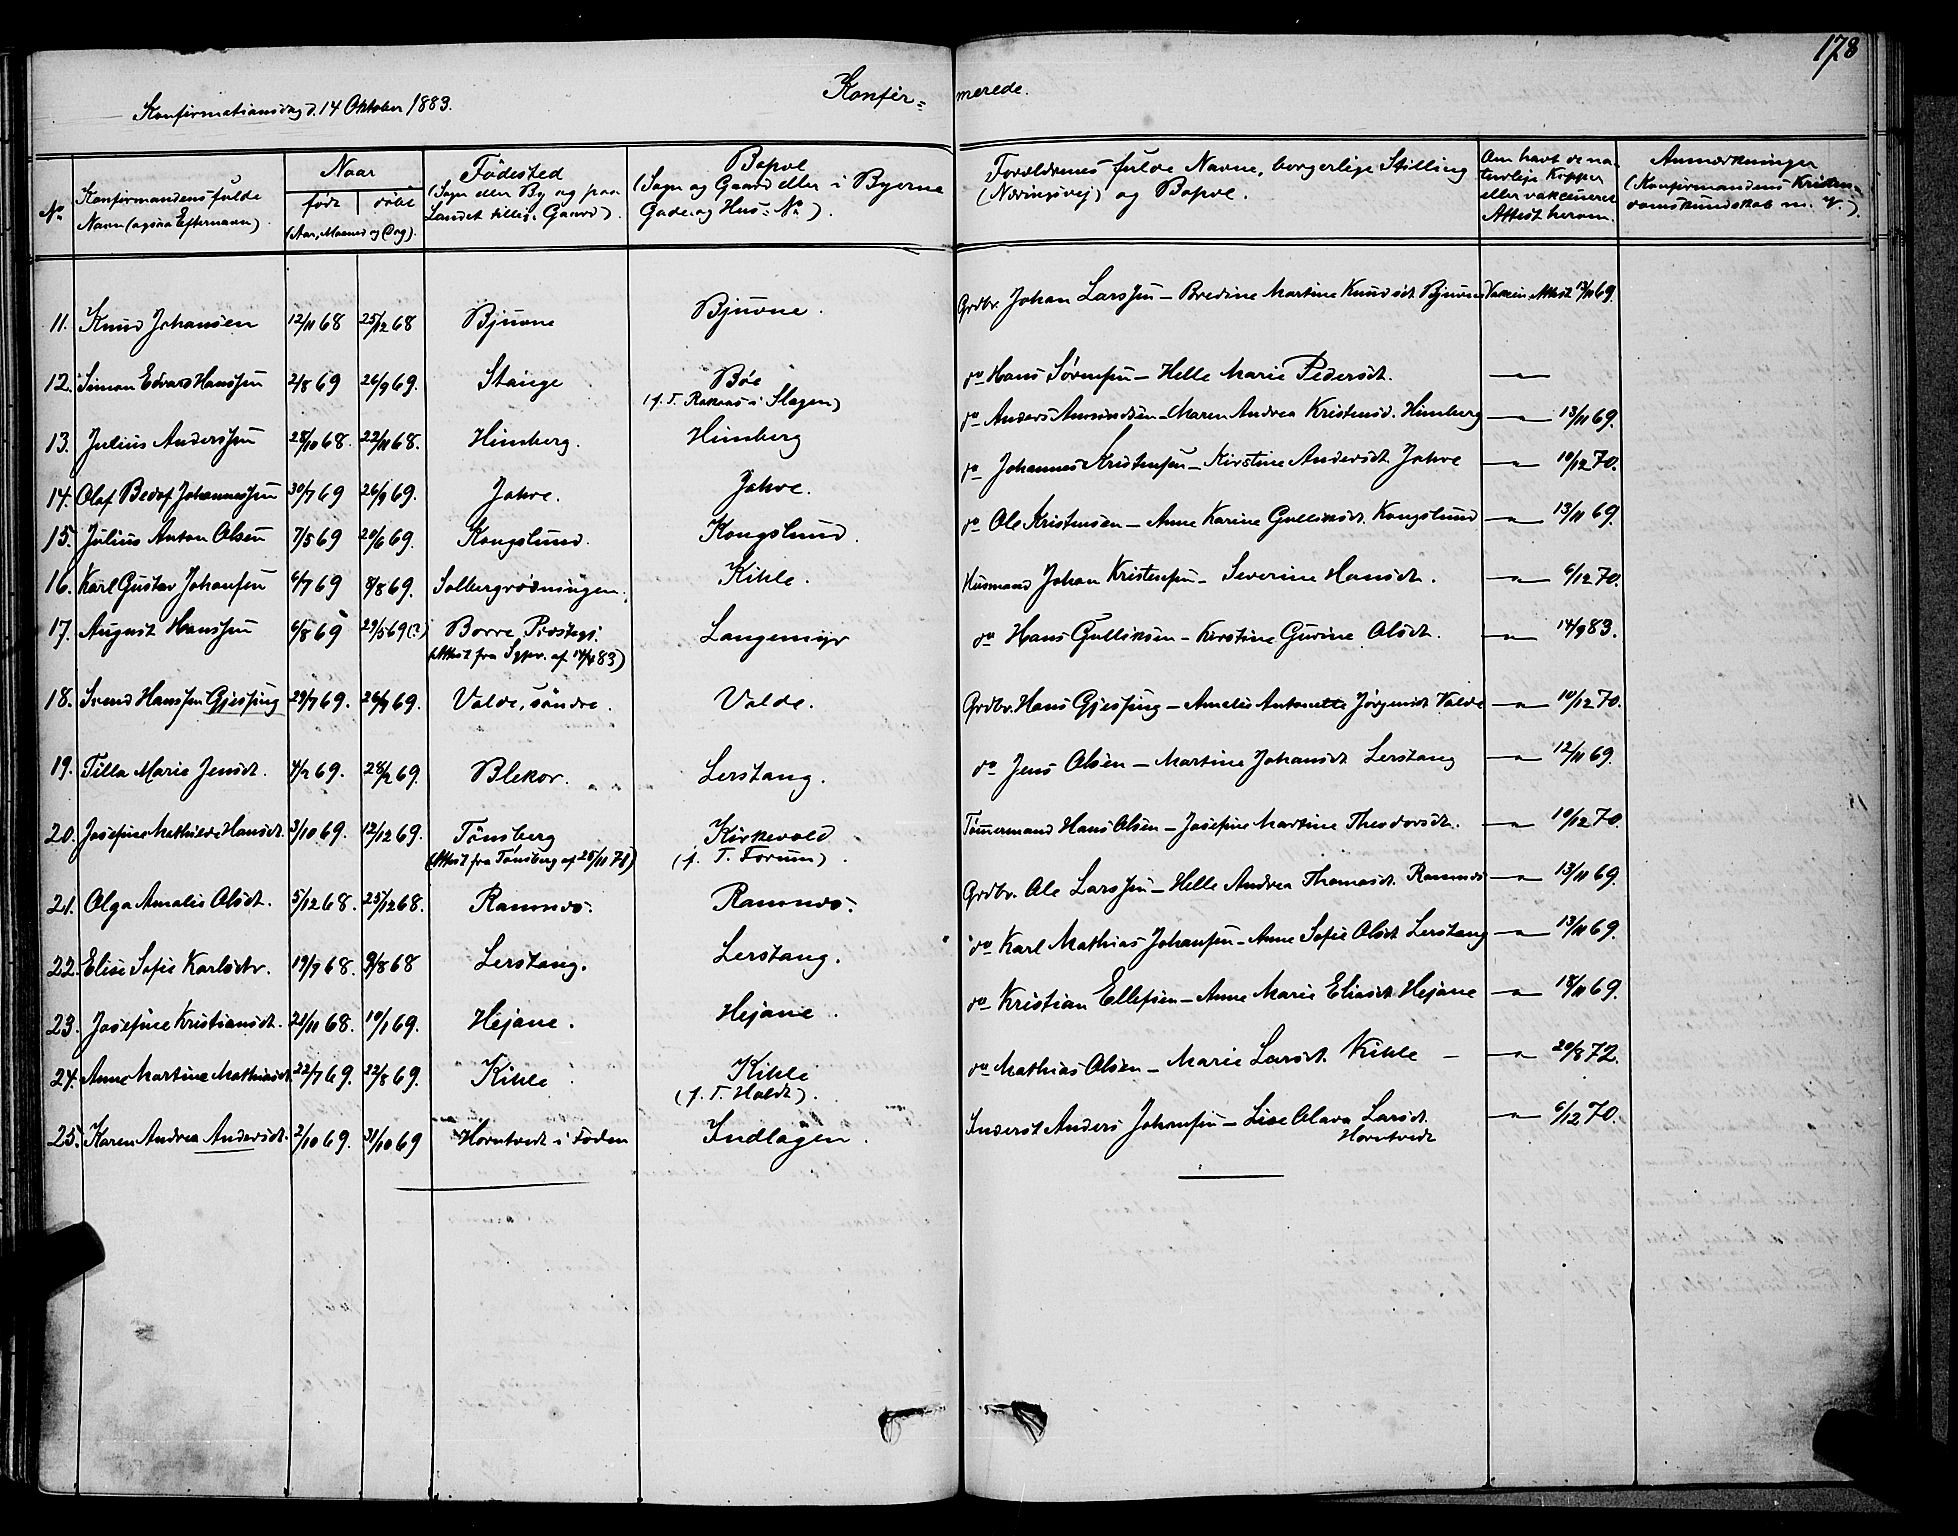 178
Konfir= merede.
Konfirmationsdag d. 14 Oktober 1883.
No
Konfirmandens fulde
Navn (ogsaa Efternavn).
Naar
født | døbt
(Aar, Maaned og Dag).
Fødested
(Sogn eller By og paa
Landet tillige Gaard).
Bopæl
(Sogn og Gaard eller i Byerne
Gade og Hus=No).
Forældrenes fulde Navne, borgerlige Stilling
(Næringsvej) og Bopæl.
Om havt de na-
turlige Kopper
eller vakcineret
Attest herom.
Anmærkninger
(Konfirmandens Kristen-
domskundskab m. v.).
11. Knud Johansen 12/11 68 25/12 68 Bjuone Bjuone. Grdbr. Johan Larssen - Bredine Martine Knudsdt. Bjuone Vakcin. Attest 12/11 69.
12. Simon Edvard Hanssen 2/8 69 26/9 69. Stange Bøe do Hans Sørensen - Helle Marie Pedersdt. -"-
(f. T. Raknæs i Slagen)
13. Julius Anderssen 28/10 68. 22/11 68. Himberg. Himberg do Anders Amundsen - Maren Andrea Kristensd. Himberg -"- 13/11 69.
14. Olaf Johannessen 30/7 69 26/9 69. Jahre. Jahre. do Johannes Kristensen - Kirstine Andersdt. Jahre -"- 10/12 70.
15. Julius Anton Olsen 7/5 69 20/6 69. Kongslund. Kongslund. do Ole Kristensen - Anne Karine Gulliksdt. Kongslund -"- 13/11 69.
16. Karl Gustav Johansen 6/7 69 8/8 69. Solbergrødningen. Kihle. Husmand Johan Kristensen - Severine Hansdt. -"- 6/12 70.
17. August Hanssen 6/8 69 29/5 69 (?) Borre Præstegj. Langemyr do Hans Gulliksen - Kirstine Gurine Olsdt. -"- 14/9 83.
(Attest fra Sgpr. af 14/9 83)
18. Svend Hanssen Gjessing 29/7 69. 26/9 69. Valde, søndre. Valde. Grdbr. Hans Gjessing - Amalie Antonette Jørgensdt Valde -"- 10/12 70.
19. Tilla Marie Jensdt. 4/2 69. 28/2 69. Blekor. Lerstang. do Jens Olsen - Martine Johansdt Lerstang -"- 12/11 69.
20. Josefine Mathilde Hansdt. 3/10 69. 12/12 69. Tønsberg Kirkevold Tømermand Hans Olsen - Josefine Martine Theodorsdt. -"- 10/12 70.
(Attest fra Tønsberg af 25/11 78) (f. T. Forum).
21. Olga Amalie Olsdt. 5/12 68. 25/12 68. Ramnæs. Ramnæs. Grdbr. Ole Larssen - Helle Andrea Thomasdt. Ramnæs -"- 13/11 69.
22. Elise Sofie Karlsdtr. 19/7 68. 9/8 68 Lerstang. Lerstang. do Karl Mathias Johansen - Anne Sofie Olsdt Lerstang -"- 13/11 69.
23. Josefine Kristiansdt. 21/11 68. 10/1 69. Hejane. Hejane. do Kristian Ellefsen - Anne Marie Eliasdt Hejane -"- 18/11 69.
24. Anne Martine Mathiasdt. 22/7 69. 22/8 69. Kihle. Kihle do Mathias Olsen - Marie Larsdt. Kihle - -"- 20/8 72.
(f. T. Holdt).
25. Karen Andrea Andersdt. 2/10 69. 31/10 69 Horntvedt i Foden Indlagen. Inderst Anders Johansen - Lise Olava Larsdt. -"- 6/12 70.
Horntvedt